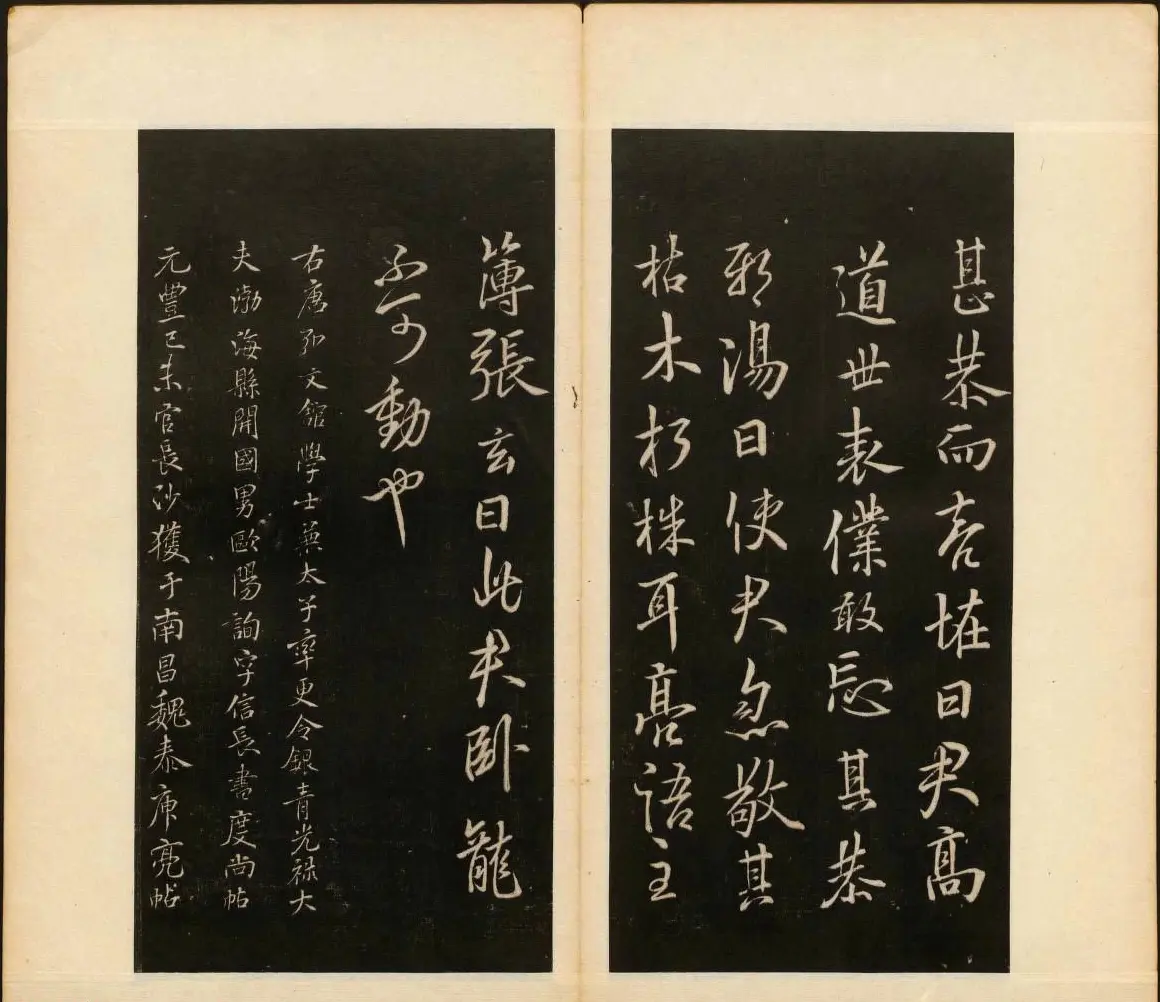 甚恭而曰君高
道世表僕敢忘其恭
邪湯曰使君忽敬其
枯木朽株耳亮語主
簿張玄曰此君卧龍
不可動也
右唐弘文館學士兼太子率更令銀青光禄大
夫渤海縣開國男歐陽詢字信長書度尚帖
元豐己未官長沙獲于南昌魏泰庾亮帖